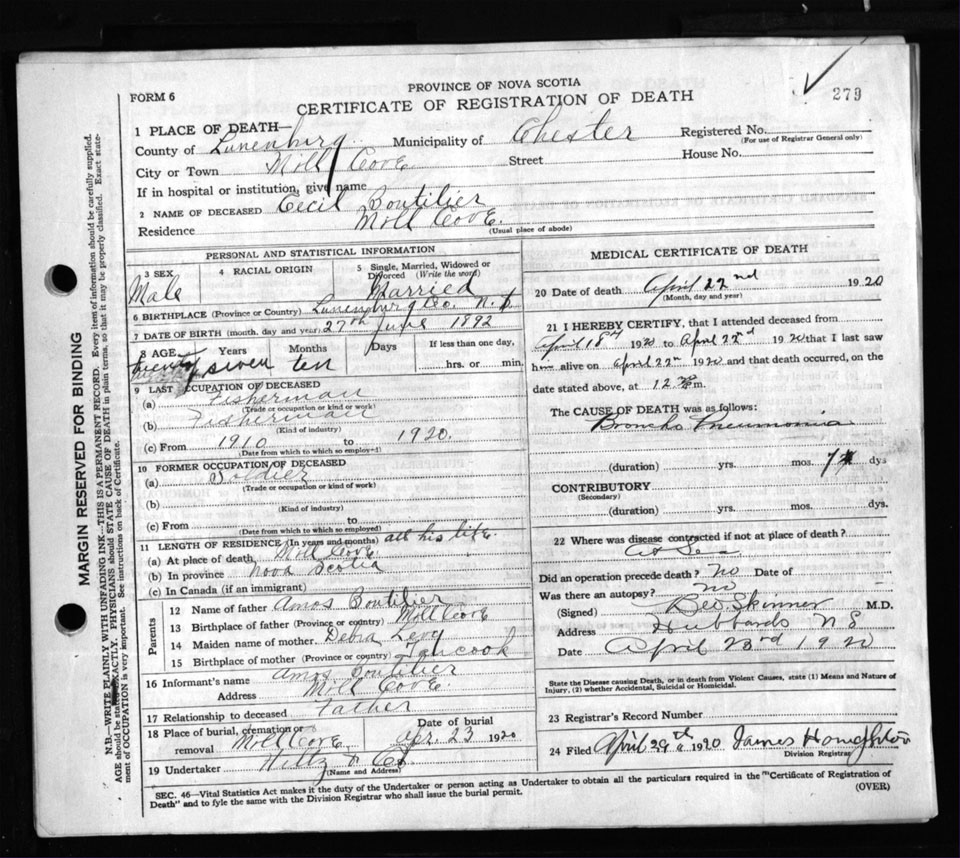 279
PROVINCE OF NOVA SCOTIA
FORM 6
CERTIFICATE OF REGISTRATION OF DEATH
1 PLACE OF DEATH—
County of Lunenburg Municipality of Chester Registered No.
(For use of Registrar General only)
City or Town Mill Cove Street House No.
If in hospital or institution, give name
2 NAME OF DECEASED Cecil Boutilier
Residence Mill Cove.
(Usual place of abode)
PERSONAL AND STATISTICAL INFORMATION
3 SEX Male
4 RACIAL ORIGIN
5 Single, Married, Widowed or Divorced (Write the word) Married
6 BIRTHPLACE (Province or Country) Lunenburg Co. N.S
7 DATE OF BIRTH (mouth, day and year) 27th June 1892
8 AGE Years Months Days If less than one day,
twenty seven ten hrs. or min.
9 LAST OCCUPATION OF DECEASED
(a) Fisherman
(Trade or occupation or kind or work)
(b) Fisherman
(Kind of industry)
(c) From 1910 to 1920.
(Date from which to which so employed)
10 FORMER OCCUPATION OF DECEASED
(a) Soldier
(Trade or occupation or kind of work)
(b)
(Kind of industry)
(c) From to
(Date from which to which so employed)
11 LENGTH OF RESIDENCE (In years and months) all his life.
(a) At place of death Mill Cove
(b) In province Nova Scotia
(c) In Canada (if an immigrant)
Parents
12 Name of father Amos Boutilier
13 Birthplace of father (Province or country) Mill Cove
14 Maiden name of mother Debra Levy
15 Birthplace of mother (Province or country) Tancook
16 Informant's name Amos Boutilier
Address Mill Cove
17 Relationship to deceased Father
18 Place of burial, cremation or removal Mill Cove
Date of burial Apr. 23 1920
19 Undertaker Hiltz & Co.
(Name and Address)
MEDICAL CERTIFICATE OF DEATH
20 Date of death April 22nd 1920
(Month, day and year)
21 I HEREBY CERTIFY, that I attended deceased from
April 18th 1920 to April 22nd 1920 that I last saw
him alive on April 22nd 1920 and that death occurred, on the
date stated above, at 12 m.
The CAUSE OF DEATH was as follows:
Broncho Pneumonia
(duration) yrs. mos. 7 dys
CONTRIBUTORY
(Secondary)
(duration) yrs. mos. dys.
22 Where was disease contracted if not at place of death?
At Sea
Did an operation precede death? no Date of
Was there an autopsy? no
(Signed) Geo Skinner M.D.
Address Hubbards N S
Date April 23rd 1920
State the Disease causing Death, or in death from Violent Causes, state (1) Means and Nature of Injury, (2) whether Accidental, Suicidal or Homicidal.
23 Registrar's Record Number
24 Filed April 29th 1920 James Houghton
Division Registrar
SEC. 46—Vital Statistics Act makes it the duty of the Undertaker or person acting as Undertaker to obtain all the particulars required in the "Certificate of Registration of
Death" and to fyle the same with the Division Registrar who shall issue the burial permit.
(OVER)
MARGIN RESERVED FOR BINDING
N.B.—WRITE PLAINLY WITH UNFADING INK—THIS IS A PERMANENT RECORD. Every item of information should be carefully supplied.
AGE should be stated EXACTLY. PHYSICIANS should STATE CAUSE OF DEATH in plain terms, so that it may be properly classified. Exact state-
ment of OCCUPATION is very important. See instructions on back of Certificate.